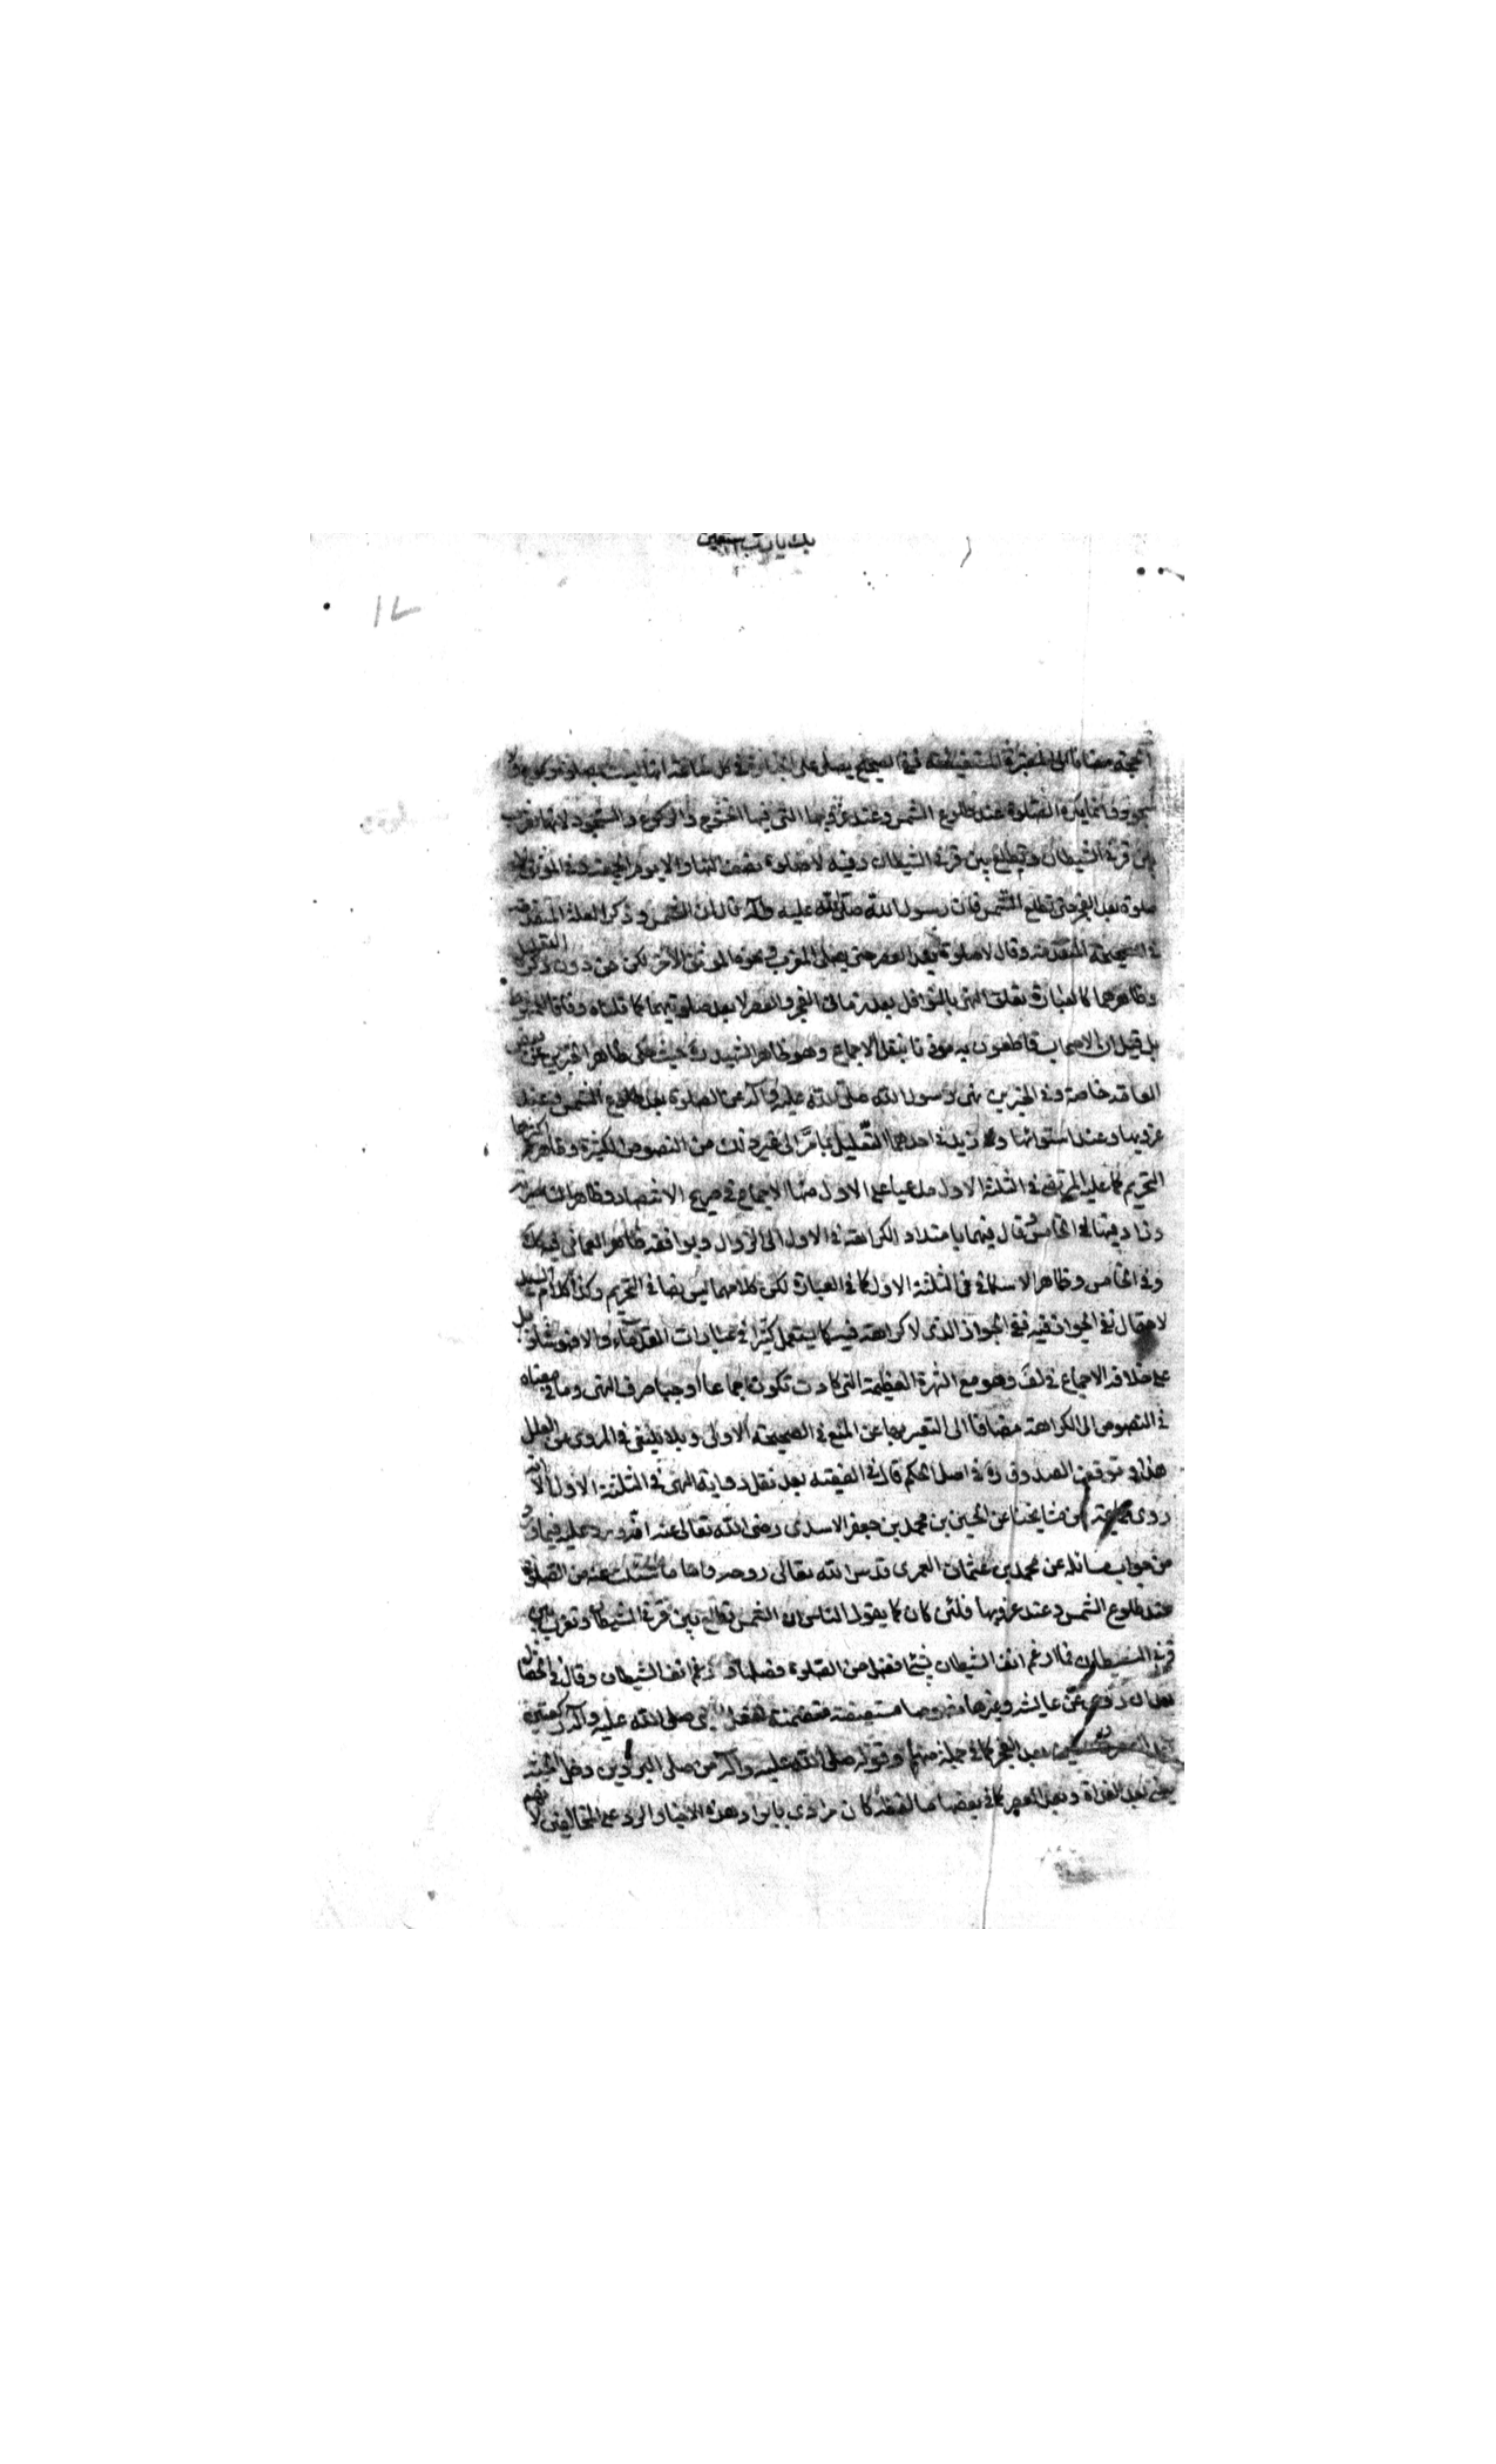 بك يا رب نستعين
١٧
الحجة مضافا الى المعتبرة المستفيضة ففي الصحيح يصلى على الجنازة في كل ساعة انها ليست بصلوة ركوع ولا
سجود وانما يكره الصلوة عند طلوع الشمس وعند غروبها التي فيها الخشوع والركوع والسجود لانها تغرب
بين قرني الشيطان وتطلع بين قرني الشيطان وفيه لا صلوة نصف النهار الا يوم الجمعة وفي الموثق لا
صلوة بعد الفجر حتى تطلع الشمس فان رسول الله صلى الله عليه وآله قال ان الشمس وذكر العلة المتقدمة
في الصحيحة المتقدمة وقال لا صلوة بعد العصر حتى يصلى المغرب ونحوه الموثق الآخر لكن من دون ذكر التعليل
وظاهرهما كالعبارة تعلق النهي بالنوافل بعد زماني الفجر والعصر لا بعد صلوتيهما كما قلناه وفاقا
بل قيل ان الاصحاب قاطعون به موذنا بنقل الاجماع وهو ظاهر الشهيد ره حيث حكى ظاهر الخبرين عن بعض
العامة خاصة وفي الخبرين نهى رسول الله صلى الله عليه وآله عن الصلوة بعد طلوع الشمس وعند
غروبها وعند استوائها وزيد في احدهما التعليل بما مر الى غير ذلك من النصوص الكثيرة وظاهر اكثرها
التحريم كما عليه المرتضى في الثلثة الاول مدعيا على الاول منها الاجماع في صريح الانتصار وظاهر الناصرية
وزاد فيها الخامس وقال فيهما بامتداد الكراهة في الاول الى الزوال ويوافقه ظاهر العماني فيه
وفي الخامس وظاهر الاسكافي في الثلثة الاول كما في العبارة لكن كلامهما ليس نصا في التحريم وكذا كلام السيد
لاحتمال نفي الجواز فيه نفي الجواز الذي لا كراهة فيه كما يستعمل كثيرا في عبارات القدماء والا فهو شاذ بل
على خلافه الاجماع في لف وهو مع الشهرة العظيمة التي كادت تكون اجماعا اوجبا صرف النهي وما في معناه
في النصوص الى الكراهة مضافا الى التعبير بها عن المنع في الصحيحة الاولى وبلا ينبغي في المروي عن العلل
هذا وتوقف الصدوق ره في اصل الحكم قال في الفقيه بعد نقل رواية النهي في الثلثة الاول الا انه
روى جماعة من مشايخنا عن الحسين بن محمد بن جعفر الاسدي رضي الله تعالى عنه انه ورد عليه فيما ورد
من جواب مسائله عن محمد بن عثمان العمري قدس الله تعالى روحه واما ما سئلت عنه من الصلوة
عند طلوع الشمس وعند غروبها فلئن كان كما يقول الناس ان الشمس تطلع بين قرني الشيطان وتغرب بين
قرني الشيطان فما ارغم انف الشيطان بشئ افضل من الصلوة فصلها وارغم انف الشيطان وقال في الخصال
بعد ان روى عن عايشه وغيرها نصوصا مستفيضة متضمنة لفعل النبي صلى الله عليه وآله ركعتين
بعد العصر وركعتين بعد الفجر كما في جملة منها وقوله صلى الله عليه وآله من صلى البردين دخل الجنة
يعني بعد الغداة وبعد العصر كما في بعضها ما لفظه كان مرادي بايراد هذه الاخبار الرد على المخالفين لانهم